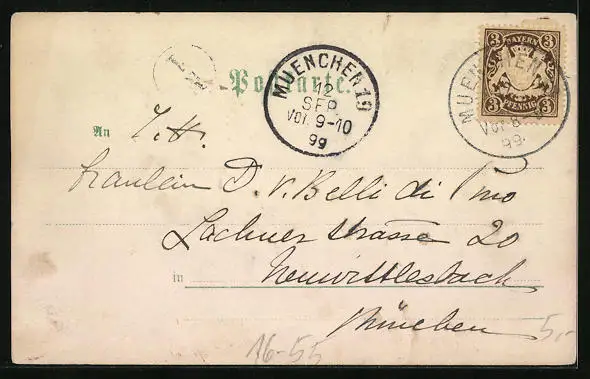 Postkarte.
MUENCHEN 19
12
SEP
Vor. 9-10
99
3 BAYERN 3
3 PFENNIG 3
MUENCHEN
Vor. 8-
99
An
Fräulein D. v. Belli di Pino
Lachner Strasse 20
in Neuwittlesbach
München
16-55
5,-